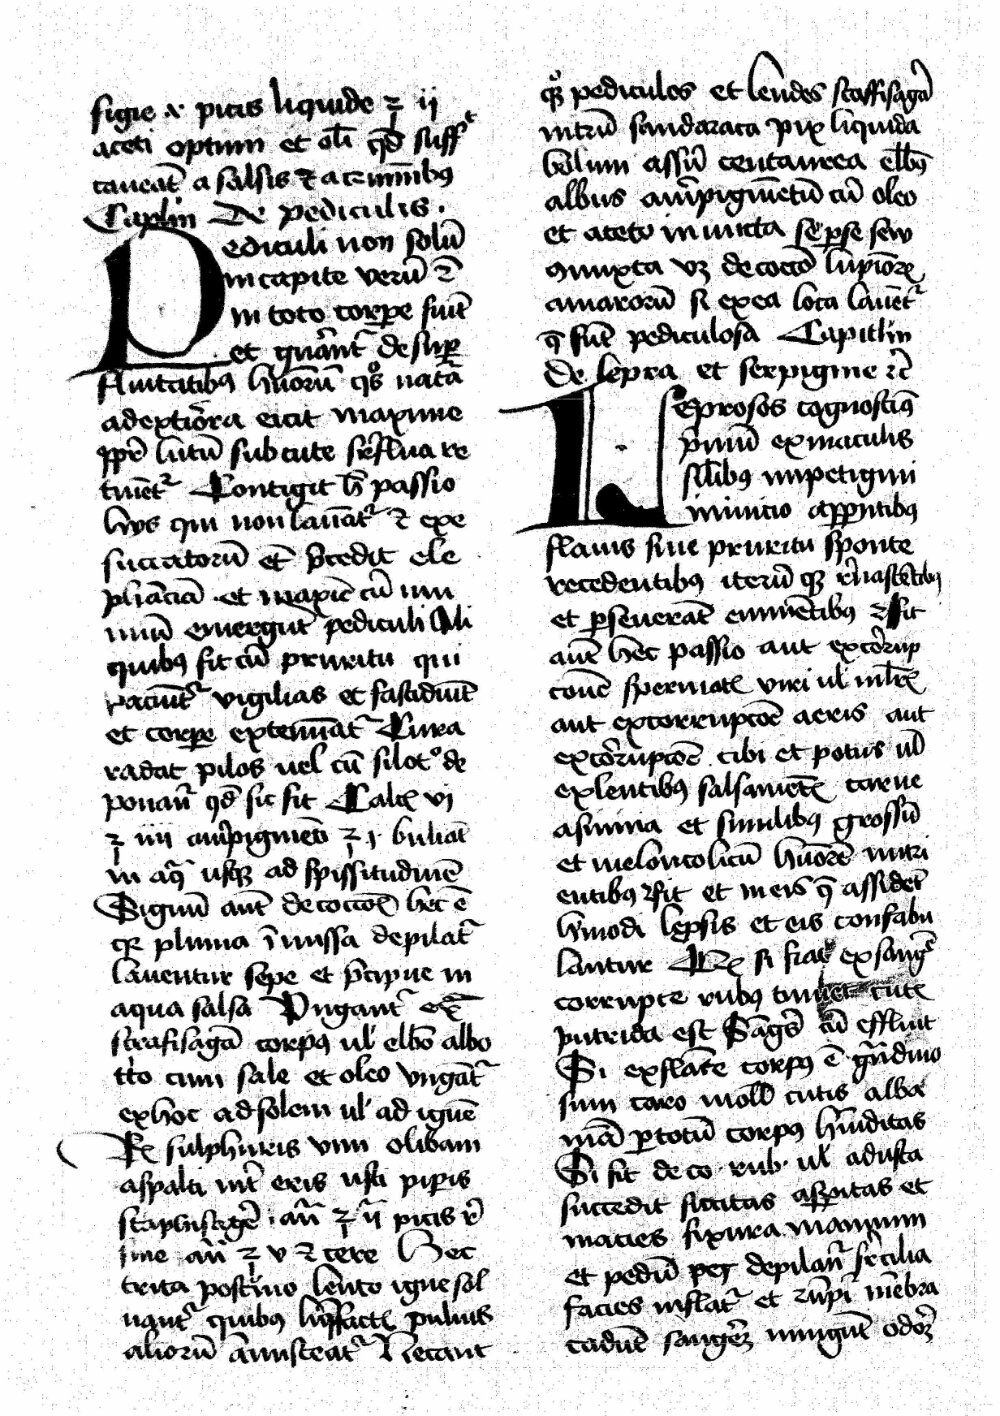 figie x picis liquide ʒ ij
aceti optim et oli qd suff
caveat a salsis et acruminibꝰ
Caplm De pediculis.
Pediculi non solū
in capite verū et
in toto corpe fiūt
et gnant de supr
fluitatibꝰ hūorū qs natā
ad extiora eicit maxime
ppt lutū sub cute suflua re
tinet Contigit h passio
hijs qui non lavāt et exe
siccatorū et pcedit ele
phāciā et maxīe cū nīm
nimiū emergūt pediculi Ali
quibꝰ fit cū pruritu qui
paciūt vigilias et fastidiūt
et corpe extenuāt Cura
radat pilos vel cū silot de
ponant qd sic fit Calcis vj
ʒ iiij auripigmēti ʒ j. buliāt
in aq usqꝫ ad spissitudinē
Signū aūt decoctōis hec ē
qr pluma īmissa depilat
lavētur sepe et pcipue in
aqua salsa Pugant ex
strafisagā corpꝰ ul elbo albo
tto cum sale et oleo ungāt
ex hoc ad solem ul ad ignē
Rx sulphuris vivi olibani
aspalti nit eris usti pipis
staphisagre an ʒ ij picis rē
sine an ʒ v et cere Hec
trita postmo lento igne sol
uant quibꝰ liqfactis puluis
aliorū āmisceat Necant
qꝫ pediculos et lendes staffisagā
nitrū sandaraca pix liquida
bolum assū centaurea elbꝰ
albus auripigmētū cū oleo
et aceto inuncta se pse seu
mixta vꝫ decoctō lupiorꝫ
amarorū si ex ea loca lavēt
q sūt pediculosa Capitlm
De lepra et serpigine etc
Leprosos cognoscimꝰ
pmū ex maculis
silibꝰ impetigini
in inicio apparntibꝰ
flavis sine pruritu sponte
recedentibꝰ iterū qꝫ renascētibꝰ
et pseverāt eminētibꝰ et fit
aūt hec passio aut ex corrup
cone spermatis viri ul mlris
aut ex corrupcōe aeris aut
ex corrupcōe cibi et potus ul
ex lentibꝰ salsamētis carne
asinina et similibꝰ grossū
et melancolicū hūorē nutri
entibꝰ fit et in eis q assidet
hmodi lepsis et eis confabu
lantur Rx si fiat ex sang
corrupte rubꝰ tumet cutis
putrida est Sāgs cū effluit
Si ex flāte corpꝰ ē grādino
sum caro mollis cutis alba
mā p totū corpꝰ humiditas
Si fit de co rub ul adusta
succedit siccitas asptas et
macies fixura manuum
et pedū pes depilant supcilia
facies inflat et rūpi mēbra
cadūt sangꝫ mingūt odorꝫ